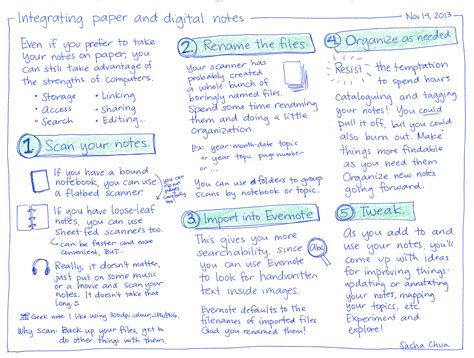 Integrating paper and digital notes
Nov 19, 2013
Even if you prefer to take
your notes on paper, you
can still take advantage of
the strengths of computers.
• Storage • Linking
• Access • Sharing
• Search • Editing...
1 Scan your notes.
If you have a bound
notebook, you can use
a flatbed scanner
(you can
If you have loose-leaf
notes, you can use
sheet-fed scanners too.
can be faster and more
convenient, BUT...
Really, it doesn't matter,
just put on some music
or a movie and scan your
notes. It doesn't take that
long.
Geek note: I like using 300dpi colour, JPG/PNG.
Why scan: Back up your files, get to
do other things with them.
2. Rename the files.
Your scanner has
probably created
a whole bunch of
boringly named files.
Spend some time renaming
them and doing a little
organization.
Ex: year-month-date topic
or year topic page-number
or ...
You can use folders to group
scans by notebook or topic.
3 Import into Evernote
This gives you more
searchability, since
you can use Evernote
to look for handwritten
text inside images.
abc
Evernote defaults to the
filenames of imported files
Glad you renamed them!
4 Organize as needed
Resist the temptation
to spend hours
cataloguing and tagging
your notes! You could
pull it off, but you could
also burn out. Make
things more findable
as you need them
Organize new notes
going forward.
5 Tweak.
As you add to and
use your notes, you'll
come up with ideas
for improving things:
updating or annotating
your notes, mapping
your topics, etc.
Experiment and
explore!
Sacha Chua